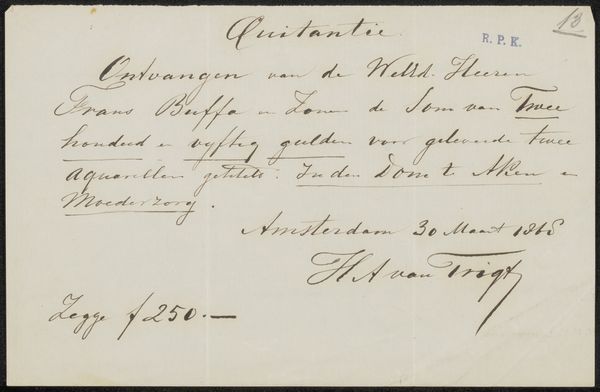 13
R. P. K.
Quitantie.
Ontvangen van de WelEd. Heeren
Frans Buffa en Zonen de Som van Twee
honderd en vijftig gulden voor geleverde twee
aquarellen getiteld: In den Dom te Aken en
Moederzorg.
Amsterdam 30 Maart 186
H A van Trigt
Zegge f 250.—